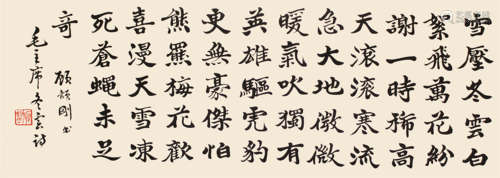 雪壓冬雲白
絮飛萬花紛
謝一時稀高
天滾滾寒流
急大地微微
暖氣吹獨有
英雄驅虎豹
更無豪傑怕
熊羆梅花歡
喜漫天雪凍
死蒼蠅未足
奇
顧頡剛書
毛主席冬雲詩